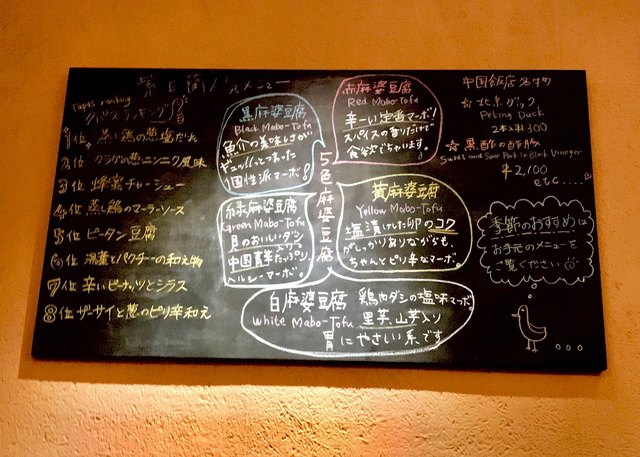 Tapas ranking
タパスランキング
1位 蒸し鶏の葱塩だれ
2位 クラゲの葱ニンニク風味
3位 蜂蜜チャーシュー
4位 蒸し鶏のマーラーソース
5位 ピータン豆腐
6位 湯葉とパクチーの和え物
7位 辛いピーナッツとシラス
8位 ザーサイと葱のピリ辛和え
5色麻婆豆腐
黒麻婆豆腐
Black Mabo-Tofu
魚介の美味しさが
ギュッとつまった
個性派マーボ!
赤麻婆豆腐
Red Mabo-Tofu
辛ーい定番マーボ!
スパイスの香りだけで
食欲でちゃいます。
緑麻婆豆腐
Green Mabo-Tofu
貝のおいしいダシ
中国青菜たっぷり、
ヘルシーマーボ。
黄麻婆豆腐
Yellow Mabo-Tofu
塩漬けした卵のコク
がしっかりありながらも、
ちゃんとピリ辛なマーボ。
白麻婆豆腐
White Mabo-Tofu
鶏肉ダシの塩味マーボ。
山芋入り
胃にやさしい系です
中国飯店名物
☆北京ダック
Peking Duck
2本入¥1300
☆黒酢の酢豚
Sweet and Sour Pork in Black Vinegar
¥2,100
etc....
季節のおすすめは
お手元のメニューを
ご覧ください